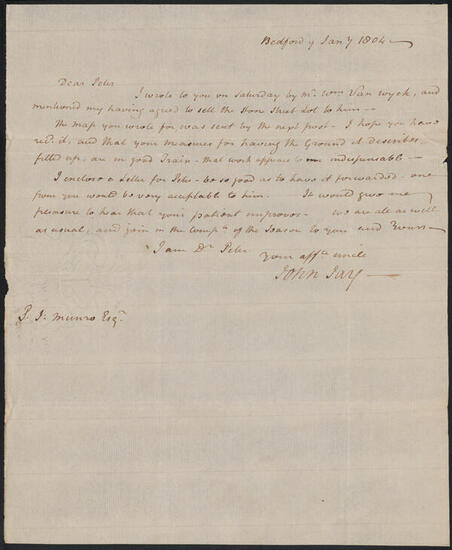 Bedford 9 Jany 1804
Dear Peter
I wrote to you on Saturday by mr. Wm. Van Wyck, and
mentioned my having agreed to sell the Stone Street Lot to him —
The map you wrote for was sent by the next post — I hope you have
recd. it, and that your measures for having the Ground it describes
filled up, are in good Train — that work appears to me indispensable —
I enclose a Letter for Peter — be so good as to have it forwarded — one
from you would be very acceptable to him. It would give me
pleasure to hear that your patient improves — we are all as well
as usual, and join in the Compts. of the Season to you and yours —
I am Dr. Peter
your affte. uncle
John Jay —
P. J. Munro Esqr.